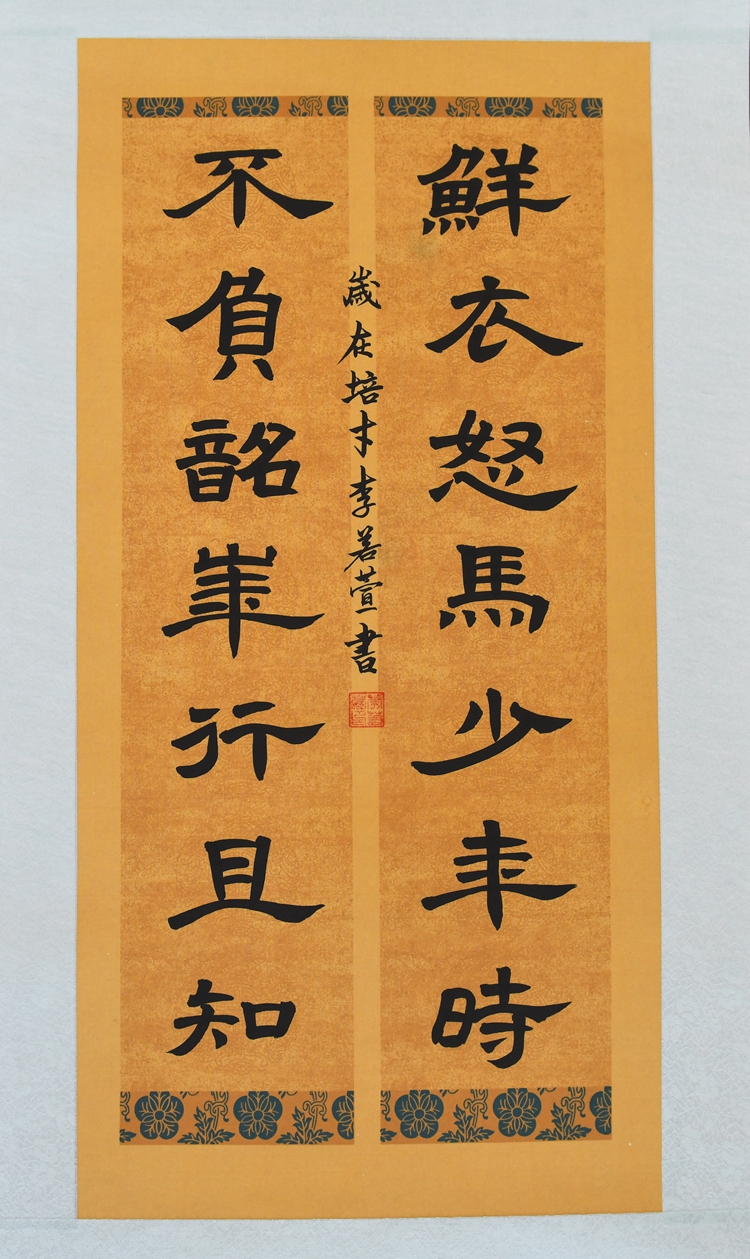 鮮衣怒馬少年時
不負韶華行且知
歲在培才李若萱書